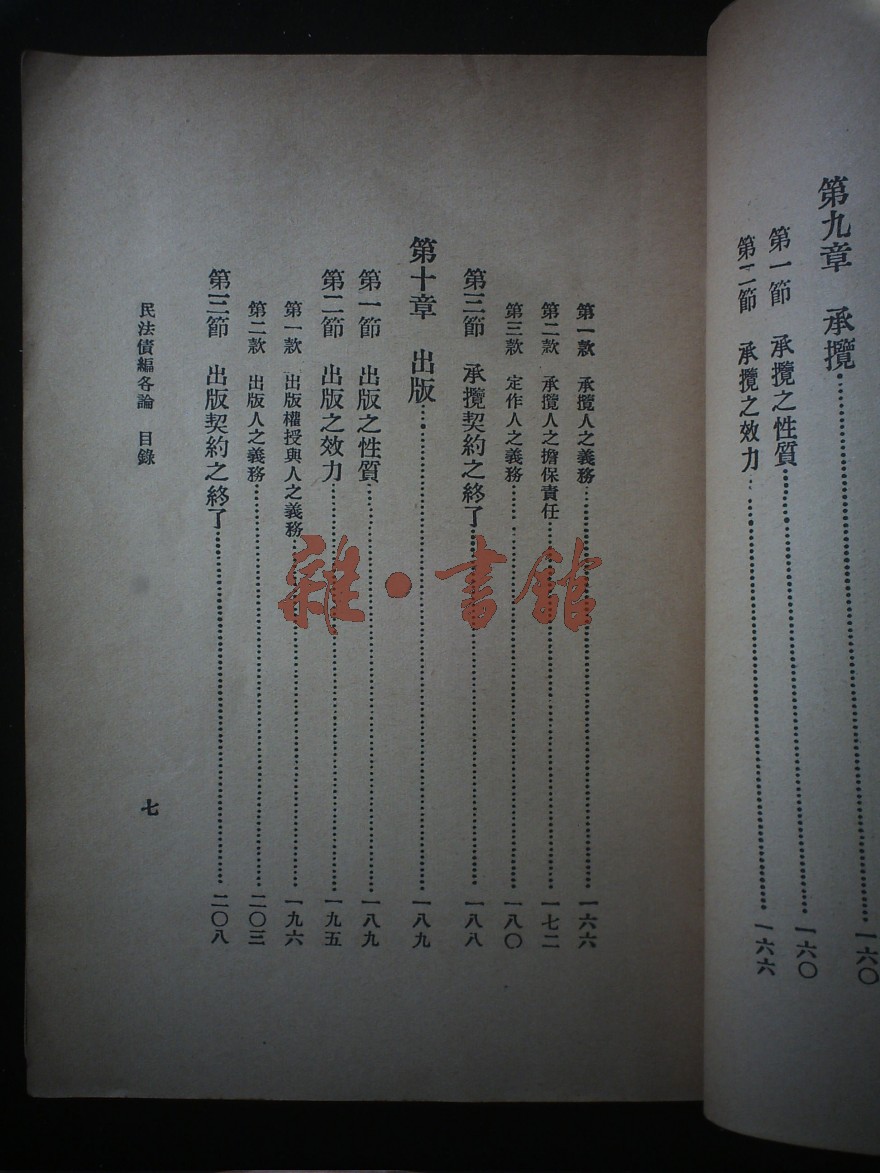 第九章　承攬……一六〇
第一節　承攬之性質……一六〇
第二節　承攬之效力……一六六
第一款　承攬人之義務……一六六
第二款　承攬人之擔保責任……一七二
第三款　定作人之義務……一八〇
第三節　承攬契約之終了……一八八
第十章　出版……一八九
第一節　出版之性質……一八九
第二節　出版之效力……一九五
第一款　出版權授與人之義務……一九六
第二款　出版人之義務……二〇三
第三節　出版契約之終了……二〇八
民法債編各論　目錄
七
雜·書館